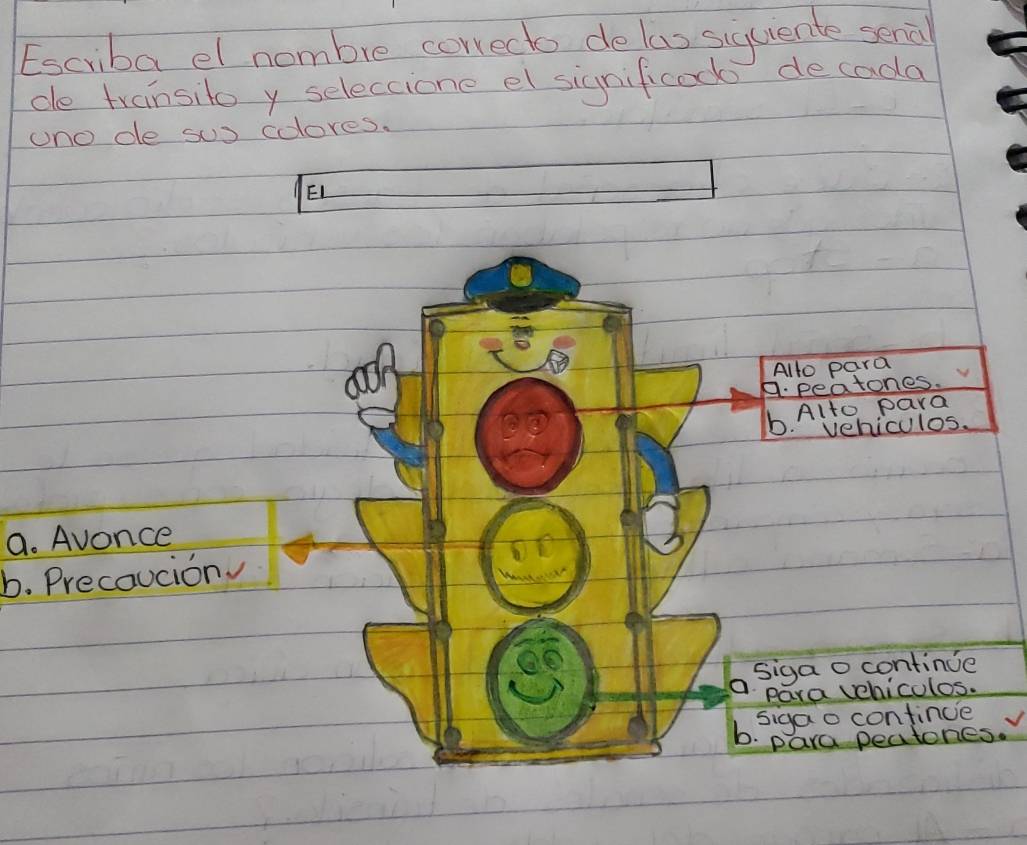 Escriba el nombre correcto de las siguiente señal
de tránsito y seleccione el significado de cada
uno de sus colores.
El
Alto para
a. peatones.
b. Alto para
vehiculos.
a. Avance
b. Precaución
Siga o continúe
a. para vehiculos.
siga o continúe
b. para peatones.